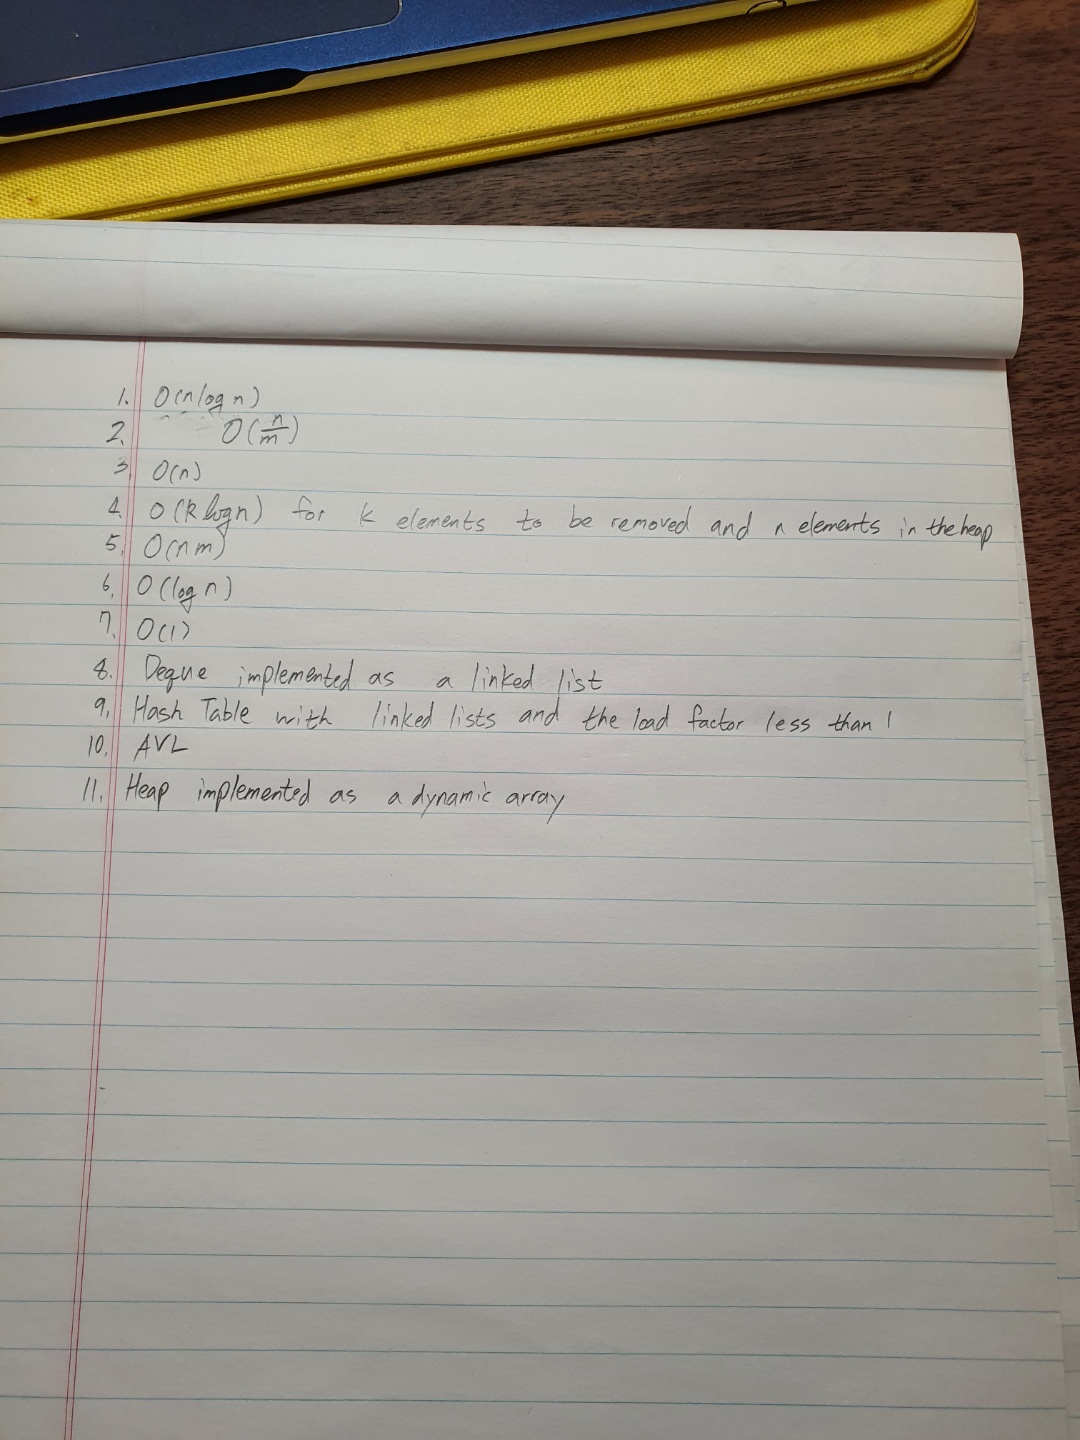 1. O(n log n)
2. O(n/m)
3. O(n)
4. O(k log n) for k elements to be removed and n elements in the heap
5. O(nm)
6. O(log n)
7. O(1)
8. Deque implemented as a linked list
9. Hash Table with linked lists and the load factor less than 1
10. AVL
11. Heap implemented as a dynamic array